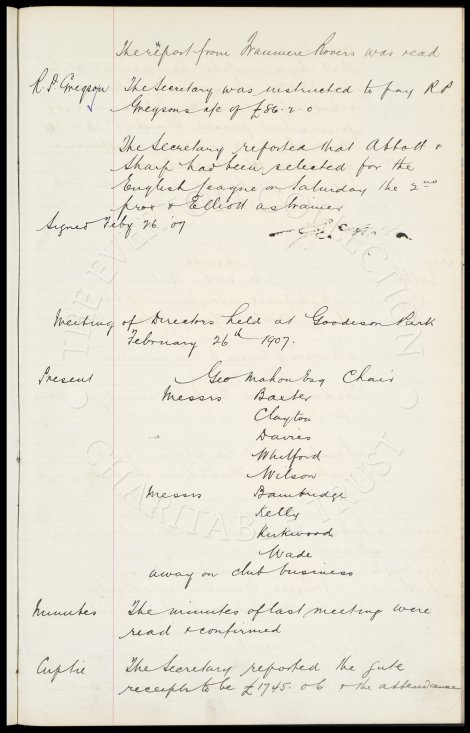 The report from Tranmere Rovers was read
R. P. Gregson The Secretary was instructed to pay R P
Gregsons a/c of £86. 2. 0
The Secretary reported that Abbott &
Sharp had been selected for the
English League on Saturday the 2nd
prox & Elliott as trainer
Signed Feby 26 07
Meeting of Directors held at Goodison Park
February 26th 1907.
Present Geo Mahon Esq Chair
Messrs Baxter
Clayton
Davies
Whitford
Wilson
Messrs Bainbridge
Kelly
Kirkwood
Wade
away on club business
Minutes The minutes of last meeting were
read & confirmed
Cuptie The Secretary reported the gate
receipts to be £1745. 0 6 & the attendance
THE EVERTON COLLECTION
CHARITABLE TRUST